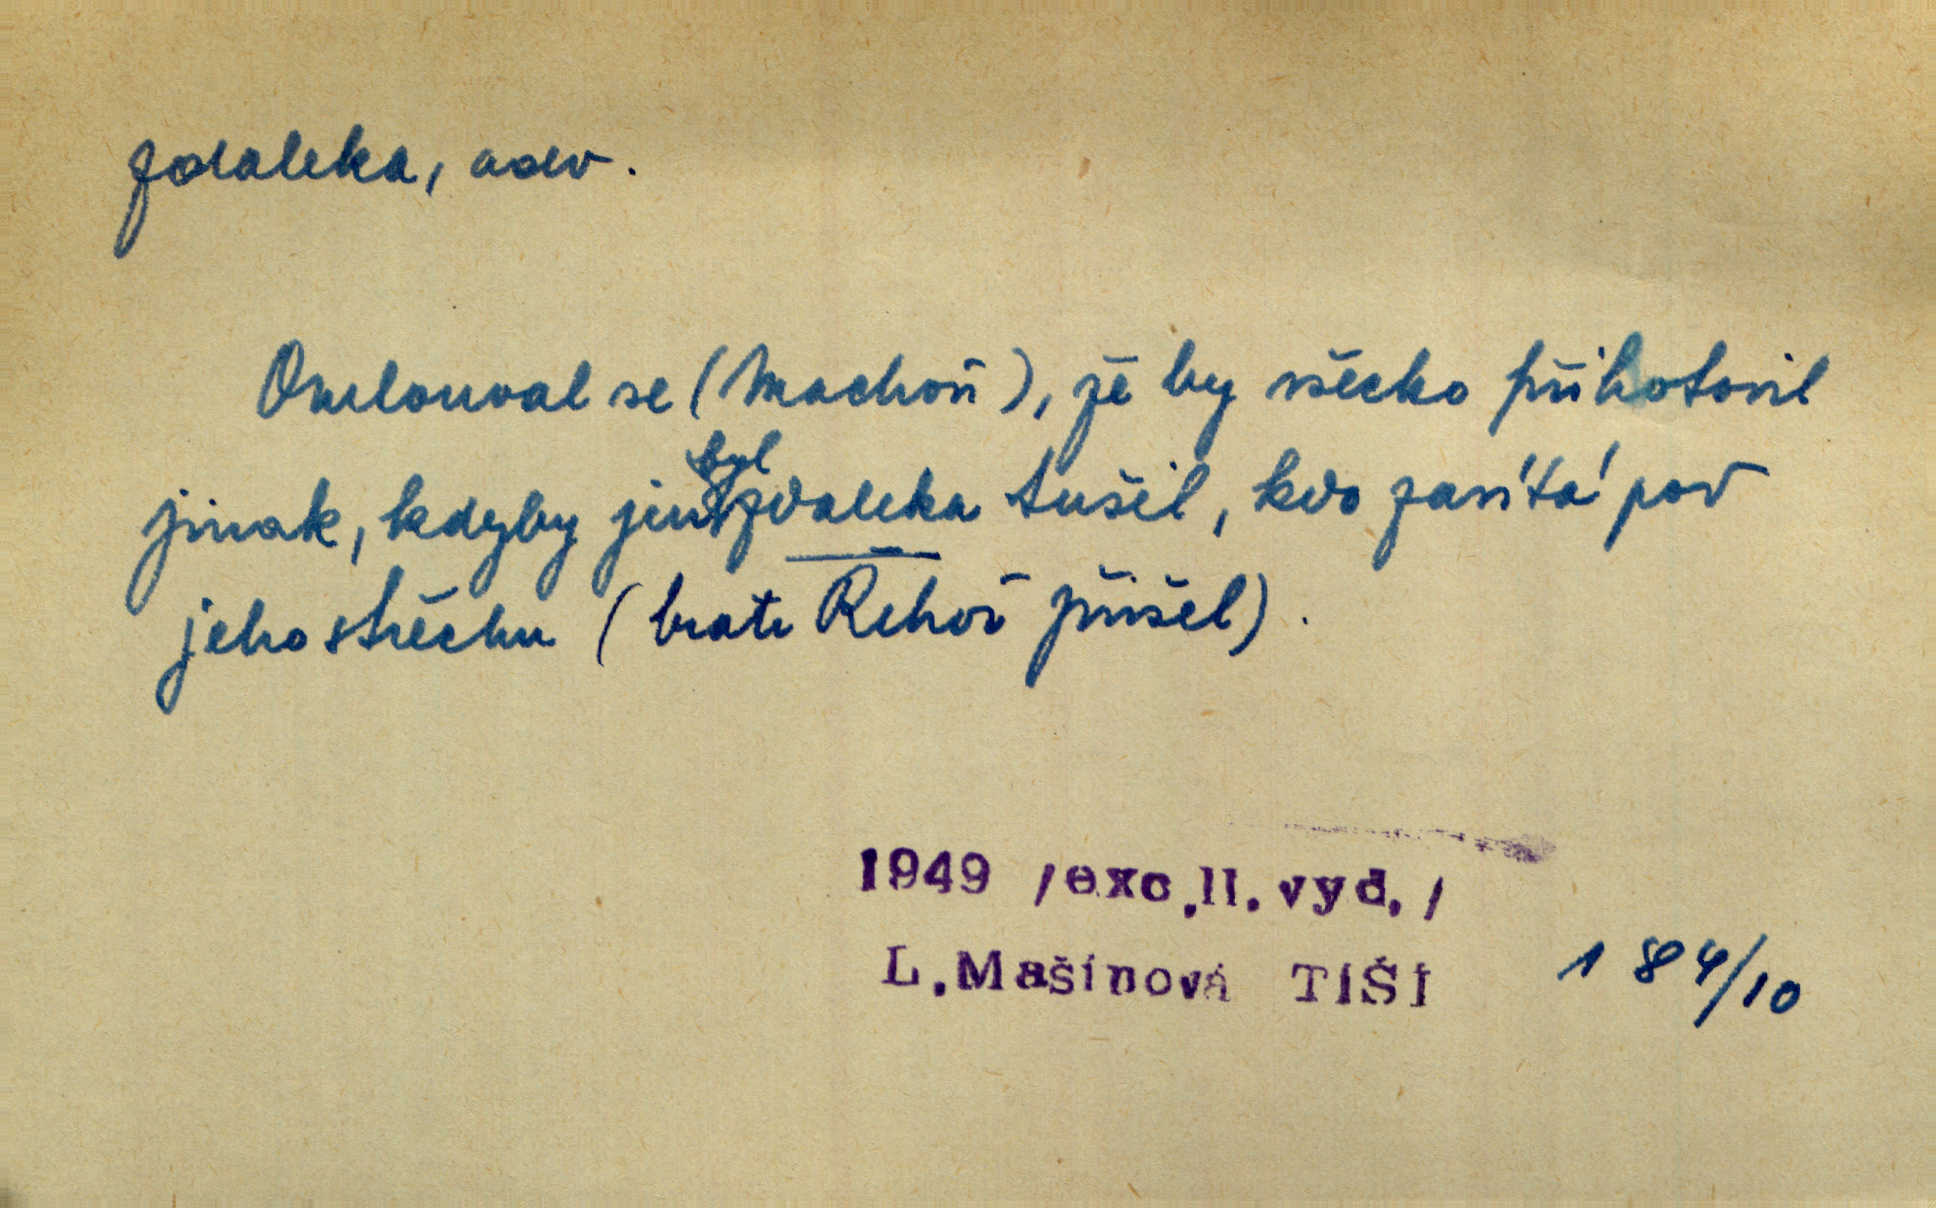 zdaleka, adv.
Omlouval se (Machoň), že by všecko přihotovil
jinak, kdyby jen byl zdaleka tušil, kdo zavítá pod
jeho střechu (bratr Řehoř přišel).
1949 /exc.II.vyd./
L.Mašínová TIŠÍ 184/10